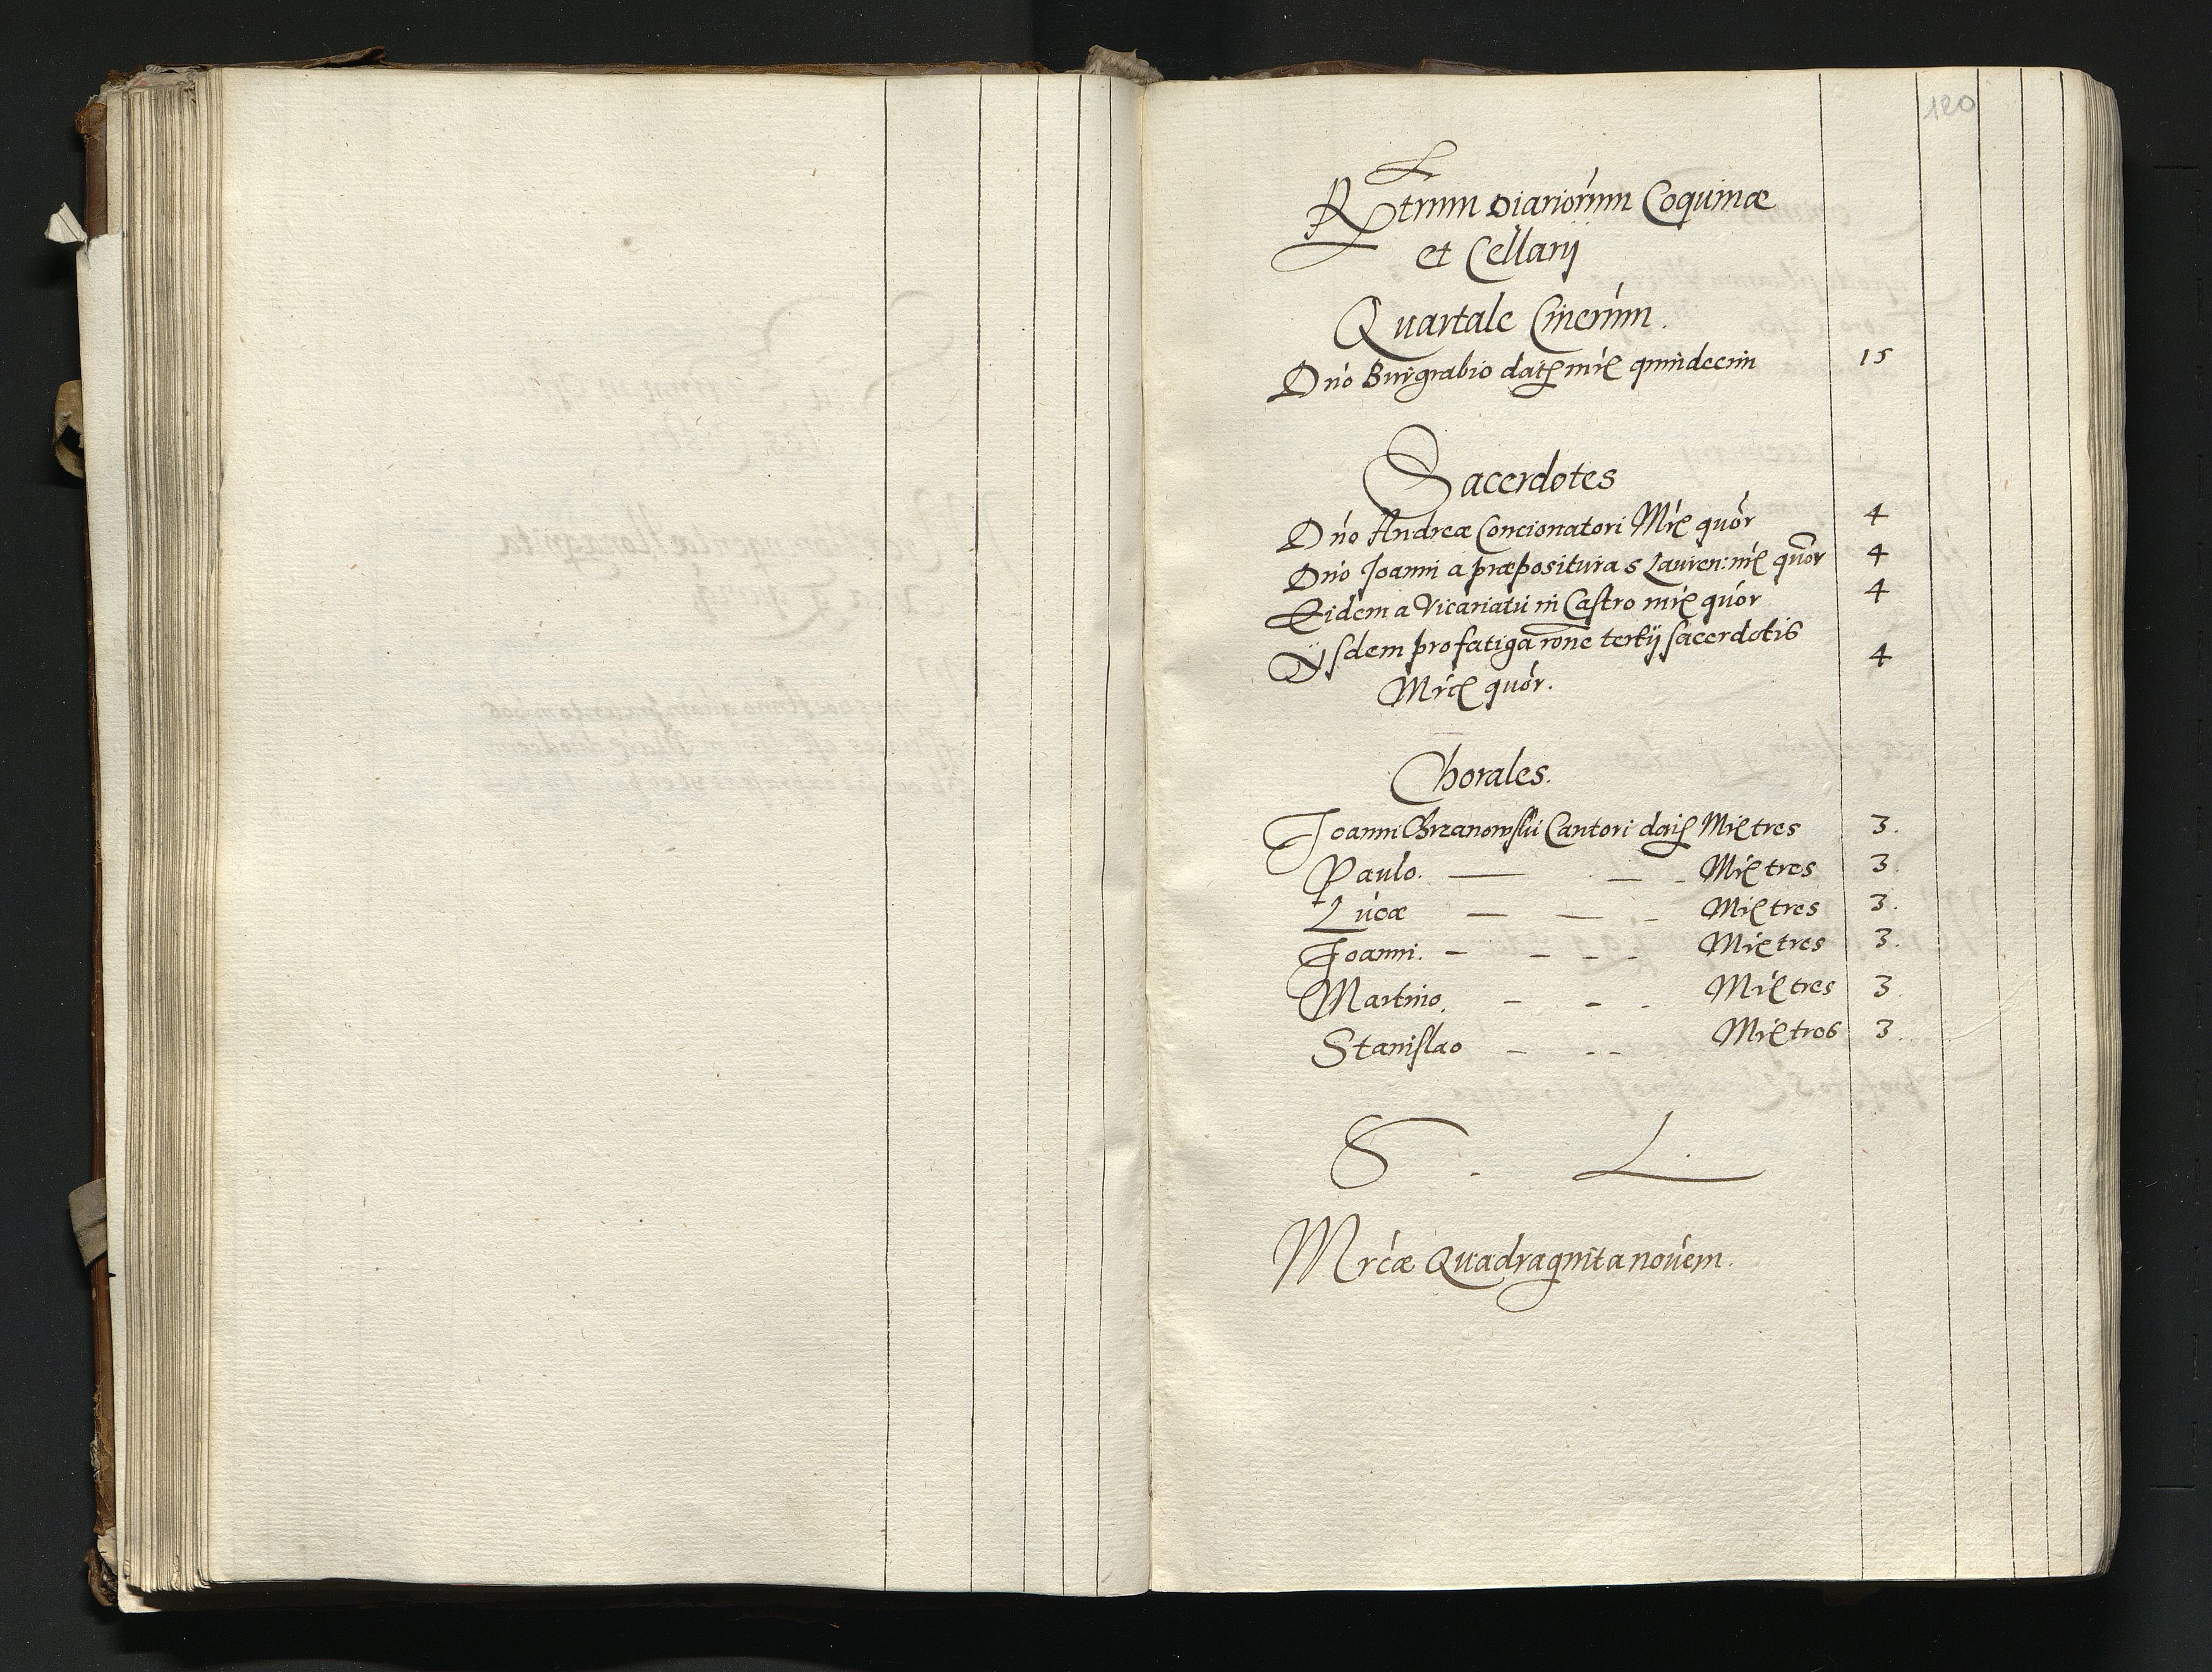 120
Rtrum Diariorum Coquinæ
et Cellarij
Quartale Cinerum.
Dno Burgrabio datę mrę quindecim 15
Sacerdotes
Dno Andreæ Concionatori Mrę quor 4
Dno Joanni a præpositura s Lauren: mrę quor 4
Eidem a Vicariatu in Castro mrę quor 4
Ijsdem pro fatiga rone tertij sacerdotis 4
Mrcę quor.
Chorales.
Joanni Chrzanowski Cantori datę Mrę tres 3.
Paulo. — — - Mrę tres 3.
Lucæ — — - Mrę tres 3.
Joanni. - - - - Mrę tres 3.
Martino. - - - Mrę tres 3.
Stanislao - - - Mrę tres 3.
S - L
Mrcæ Quadraginta novem.